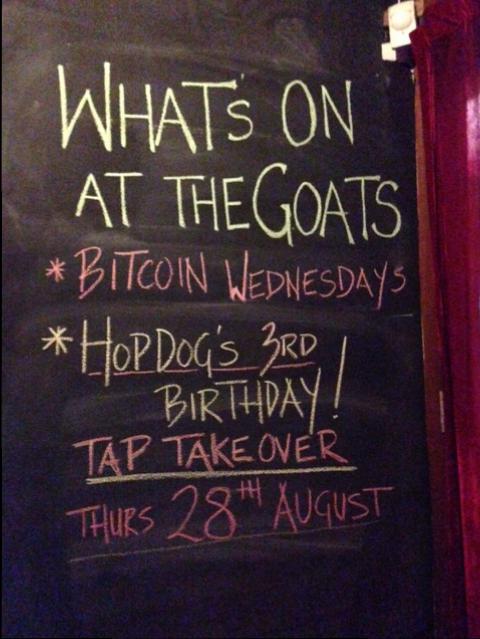 WHAT'S ON
AT THE GOATS
* BITCOIN WEDNESDAYS
* HOPDOG'S 3RD
BIRTHDAY!
TAP TAKEOVER
THURS 28TH AUGUST